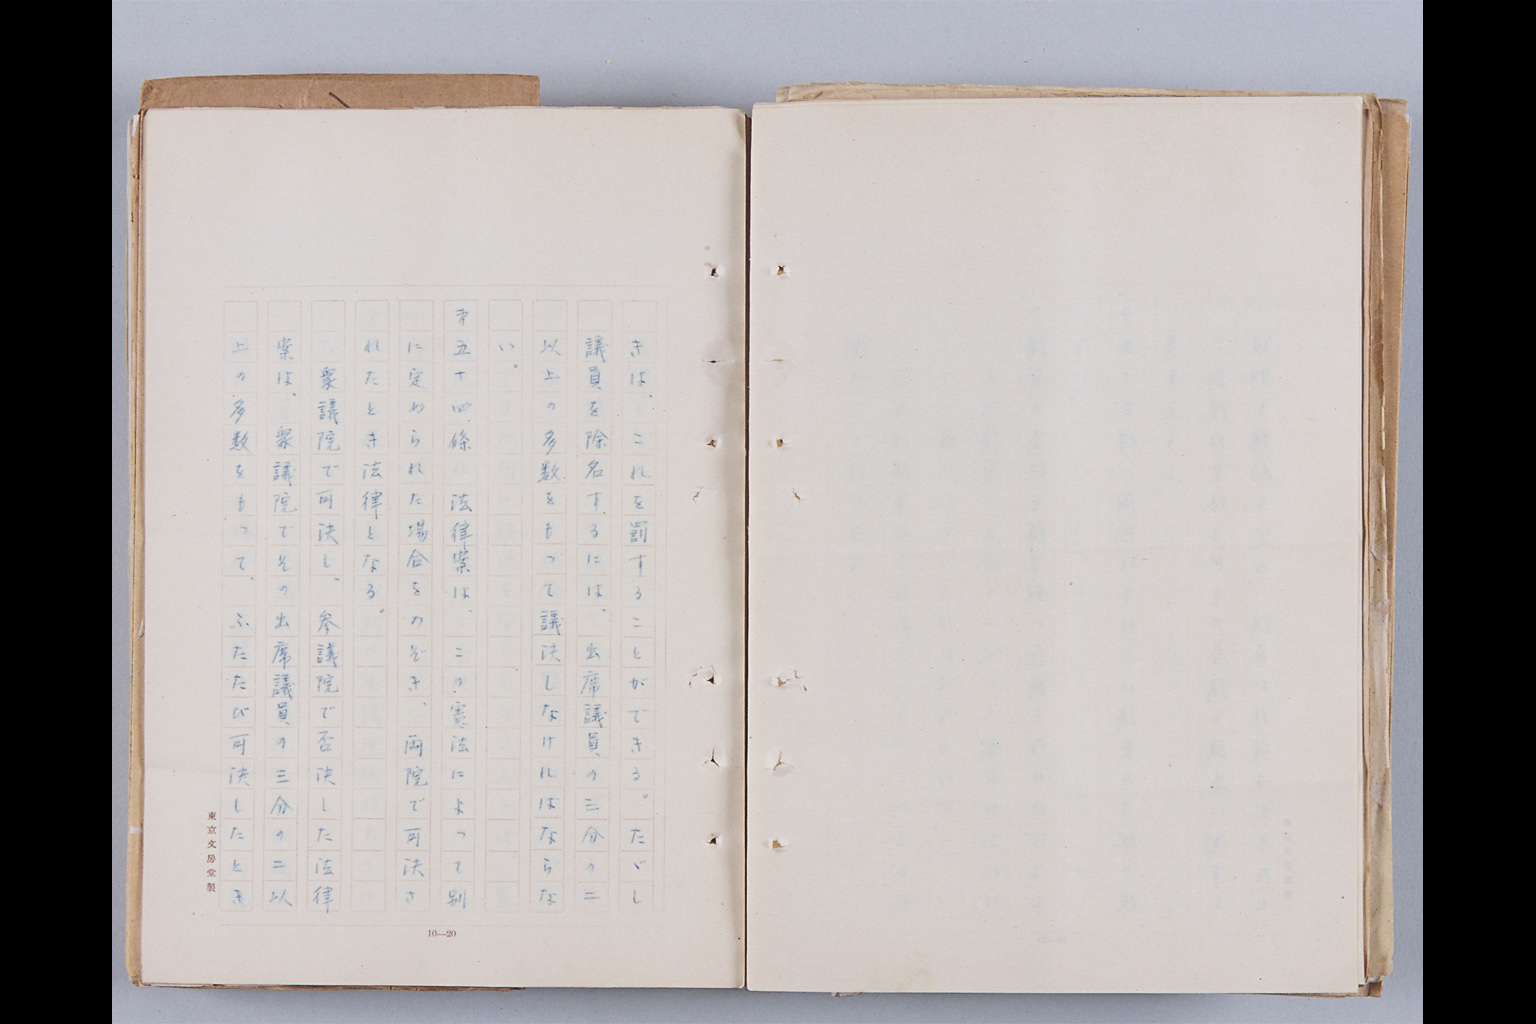 きは、これを罰することができる。たゞし
議員を除名するには、出席議員の三分の二
以上の多数をもつて議決しなければならな
い。
第五十四條　法律案は、この憲法によつて別
に定められた場合をのぞき、両院で可決さ
れたとき法律となる。
衆議院で可決し、参議院で否決した法律
案は、衆議院でその出席議員の三分の二以
上の多数をもつて、ふたたび可決したとき
東京文房堂製
10—20